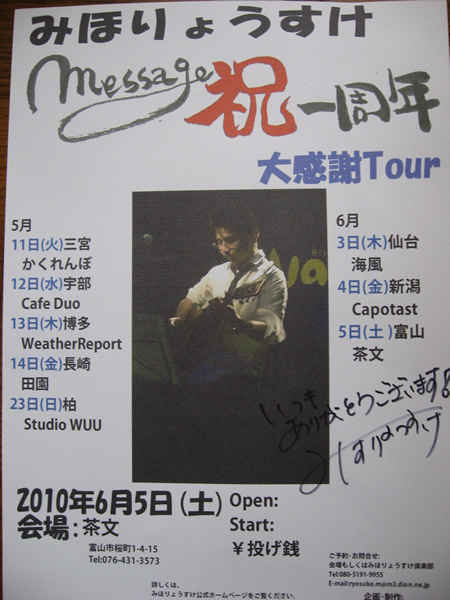 みほりょうすけ
message 祝一周年
大感謝Tour
5月
11日(火)三宮
かくれんぼ
12日(水)宇部
Cafe Duo
13日(木)博多
WeatherReport
14日(金)長崎
田園
23日(日)柏
Studio WUU
6月
3日(木)仙台
海風
4日(金)新潟
Capotast
5日(土)富山
茶文
いつも
ありがとうございます
みほりょうすけ
2010年6月5日(土)
会場:茶文
富山市桜町1-4-15
Tel:076-431-3573
Open:
Start:
¥投げ銭
ご予約・お問合せ:
会場もしくはみほりょうすけ倶楽部
Tel:080-5191-9955
E-mail:ryosuke.m@m3.dion.ne.jp
詳しくは、
みほりょうすけ公式ホームページをご覧ください。
企画・制作: